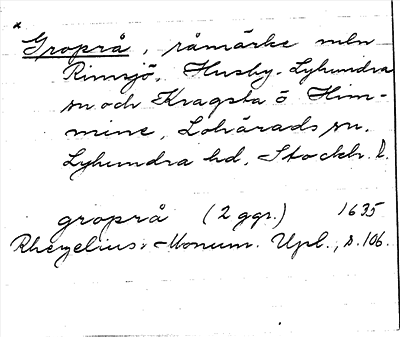 *
Groprå, råmärke mln
Rimsjö, Husby-Lyhundra
sn och Kragsta ö Him-
mine, Lohärads sn.
Lyhundra hd, Stockh. l.
groprå (2 ggr.) 1635
Rhezelius: Monum. Upl., s. 106.